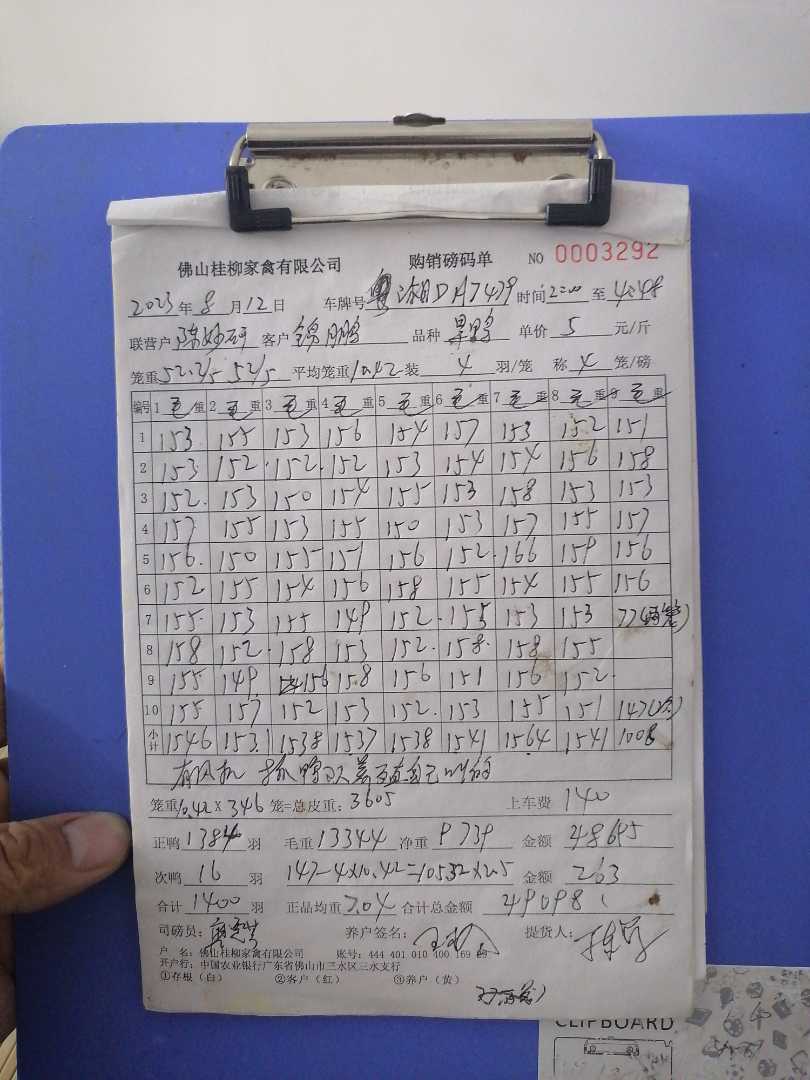 佛山桂柳家禽有限公司 购销磅码单 NO 0003292
2023年8月12日 车牌号 时间2:00至4:48
联营户 客户 锦鹏 品种 单价 5 元/斤
笼重52.2/5 52/5 平均笼重10.42装 4 羽/笼 称 4 笼/磅
编号 1 毛重 2 毛重 3 毛重 4 毛重 5 毛重 6 毛重 7 毛重 8 毛重 9 毛重
1 153 155 153 156 154 157 153 152 151
2 153 152 152 152 153 154 154 156 158
3 152 153 150 154 155 153 158 153 153
4 157 155 153 155 150 153 157 155 157
5 156 150 155 151 156 152 166 159 156
6 152 155 154 156 158 155 154 155 156
7 155 153 155 149 152 155 153 153 77(两笼)
8 158 152 158 153 152 158 158 155
9 155 149 156 158 156 151 156 152
10 155 157 152 153 152 153 155 151 147(次)
小计 1546 1531 1538 1537 1538 1541 1564 1541 1008
有风机
笼重10.42×346笼=总皮重:3605 上车费 140
正鸭 1384 羽 毛重13344 净重9739 金额 48695
次鸭 16 羽 147-4×10.42=105.32×2.5 金额 263
合计 1400 羽 正品均重7.04 合计总金额 49098
司磅员: 养户签名: 提货人:
户 名:佛山桂柳家禽有限公司 账号:444 401 010 400 169 89
开户行:中国农业银行广东省佛山市三水区三水支行
①存根(白) ②客户(红) ③养户(黄)
CLIPBOARD